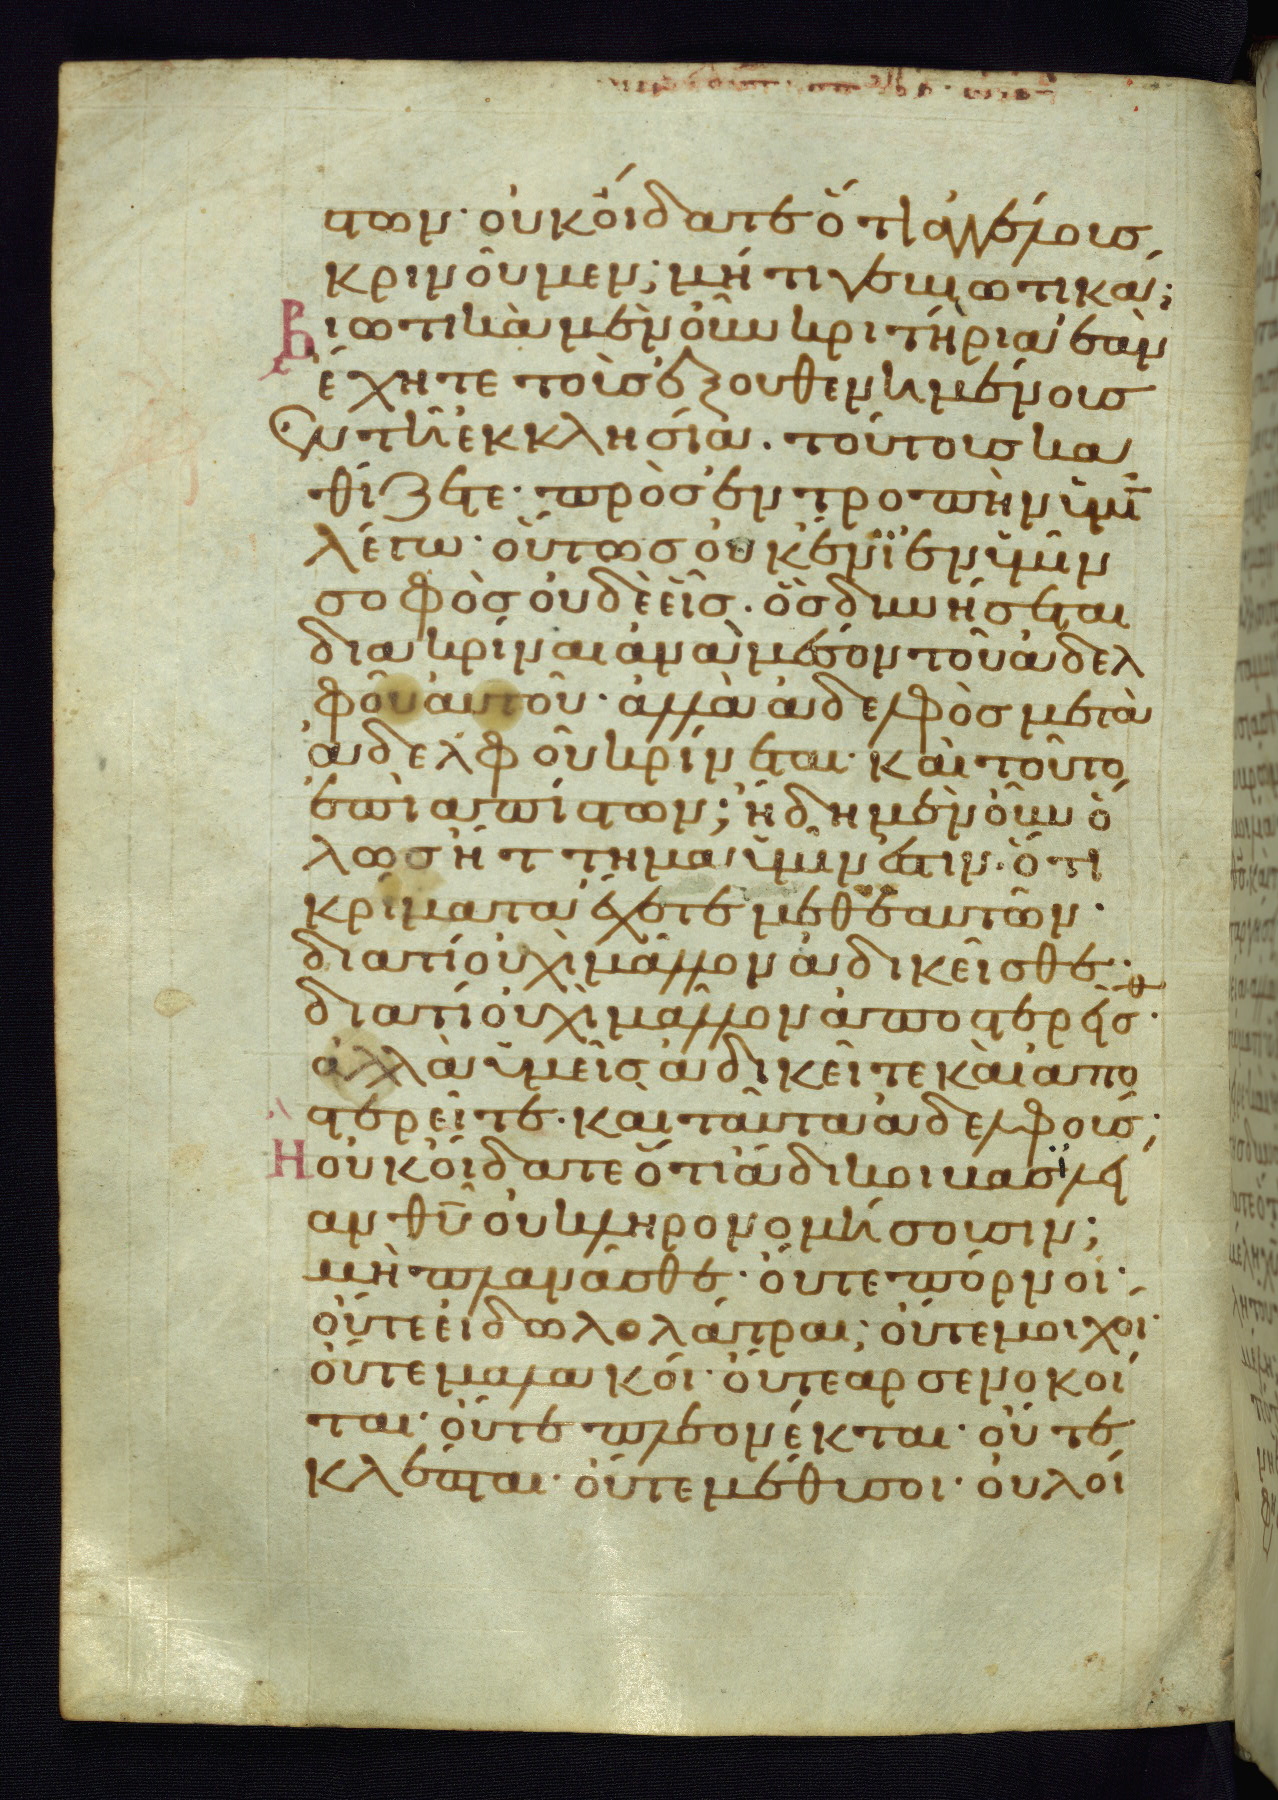 στων· οὐκ οἴδατε ὅτι ἀγγέλους
κρινοῦμεν; μήτιγε βιωτικά;
Βιωτικὰ μὲν οὖν κριτήρια ἐὰν
ἔχητε τοὺς ἐξουθενημένους
ἐν τῆ ἐκκλησία. τούτους κα
θίζετε· πρὸς ἐντροπὴν ὑμῖν
λέγω· οὕτως οὐκ ἔνι ἐν ὑμῖν
σοφὸς οὐδὲ εἷς. ὃς δυνήσεται
διακρίναι ἀνὰ μέσον τοῦ ἀδελ
φοῦ αὐτοῦ· ἀλλὰ ἀδελφὸς μετὰ
ἀδελφοῦ κρίνεται· καὶ τοῦτο
ἐπὶ ἀπίστων; ἤδη μὲν οὖν ὅ
λως ἥττημα ὑμῖν ἐστιν. ὅτι
κρίματα ἔχετε μεθ' ἑαυτῶν·
διατί οὐχὶ μᾶλλον ἀδικεῖσθε·
διατί οὐχὶ μᾶλλον ἀποστερεῖσθ·
ἀλλὰ ὑμεῖς ἀδικεῖτε καὶ ἀπο
στερεῖτε. καὶ ταῦτα ἀδελφούς;
Ἢ οὐκ οἴδατε ὅτι ἄδικοι βασιλεί
αν θυ οὐ κληρονομήσουσιν;
μὴ πλανᾶσθε· οὔτε πόρνοι·
οὔτε εἰδωλολάτραι; οὔτε μοιχοί·
οὔτε μαλακοί· οὔτε ἀρσενοκοί
ται· οὔτε πλεονέκται· οὔτε
κλέπται· οὔτε μέθυσοι· οὐ λοί